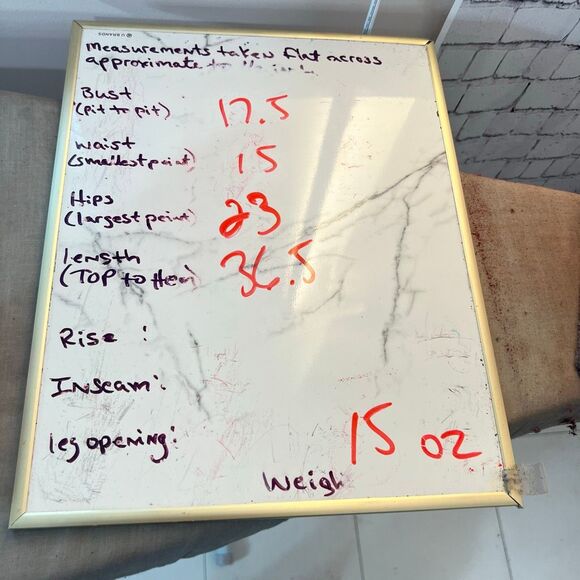 U BRANDS
measurements taken flat across
approximate
Bust
(pit to pit)
17.5
waist
(smallest point)
15
Hips
(largest point)
23
length
(TOP to Hem)
36.5
Rise :
Inseam:
leg opening:
15 oz
Weigh